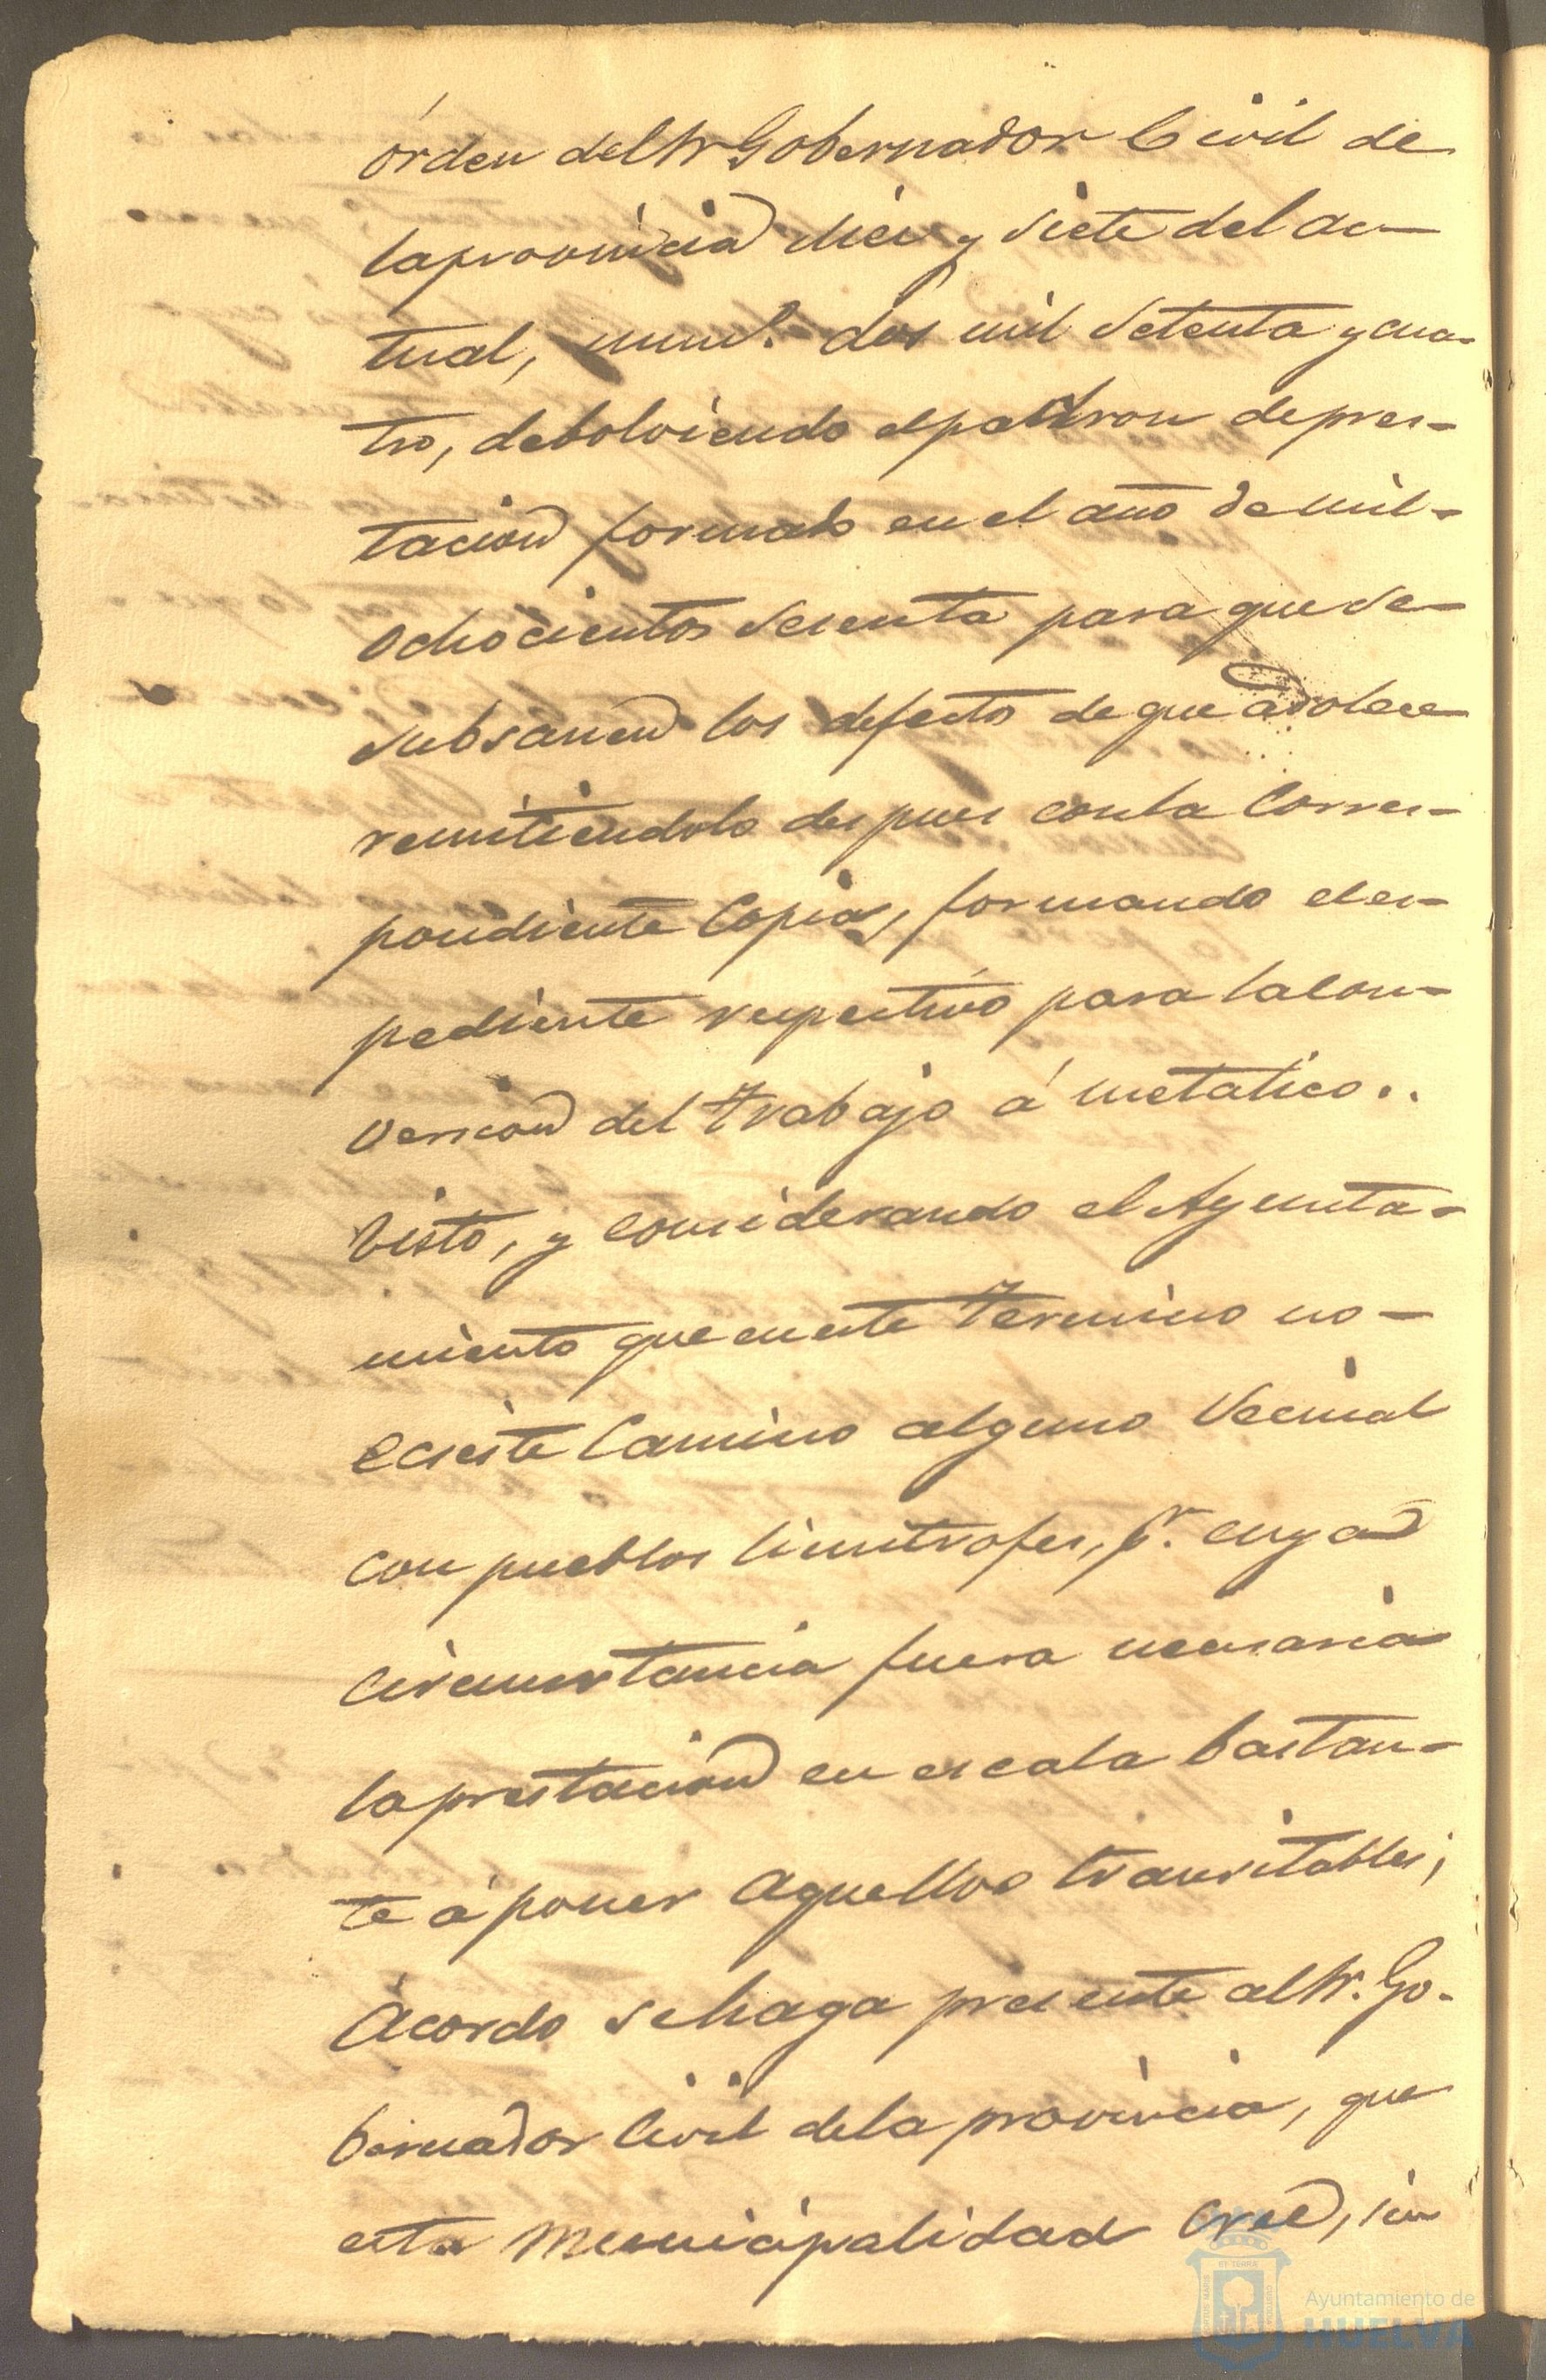 órden del Sr Gobernador Civil de
la provincia diez y siete del ac-
tual, num.º dos mil setenta y cua-
tro, debolviendo el padron de pres-
tacion formado en el año de mil-
ochocientos sesenta para que se-
subsanen los defectos de que adolece
remitiendolo despues con la corres-
pondiente Copia, formando el es-
pediente respectivo para la con-
version del trabajo á metalico..
Visto, y considerando el Ayunta-
miento que en este termino no-
ecsiste Camino alguno Vecinal
con pueblos limitrofes, p.r cuya
circunstancia fuera necesaria
la prestacion en escala bastan-
te á poner aquellos transitables;
Acordo se haga presente al Sr. Go-
bernador Civil de la provincia, que
esta Municipalidad cree, sin
Ayuntamiento de
HUELVA